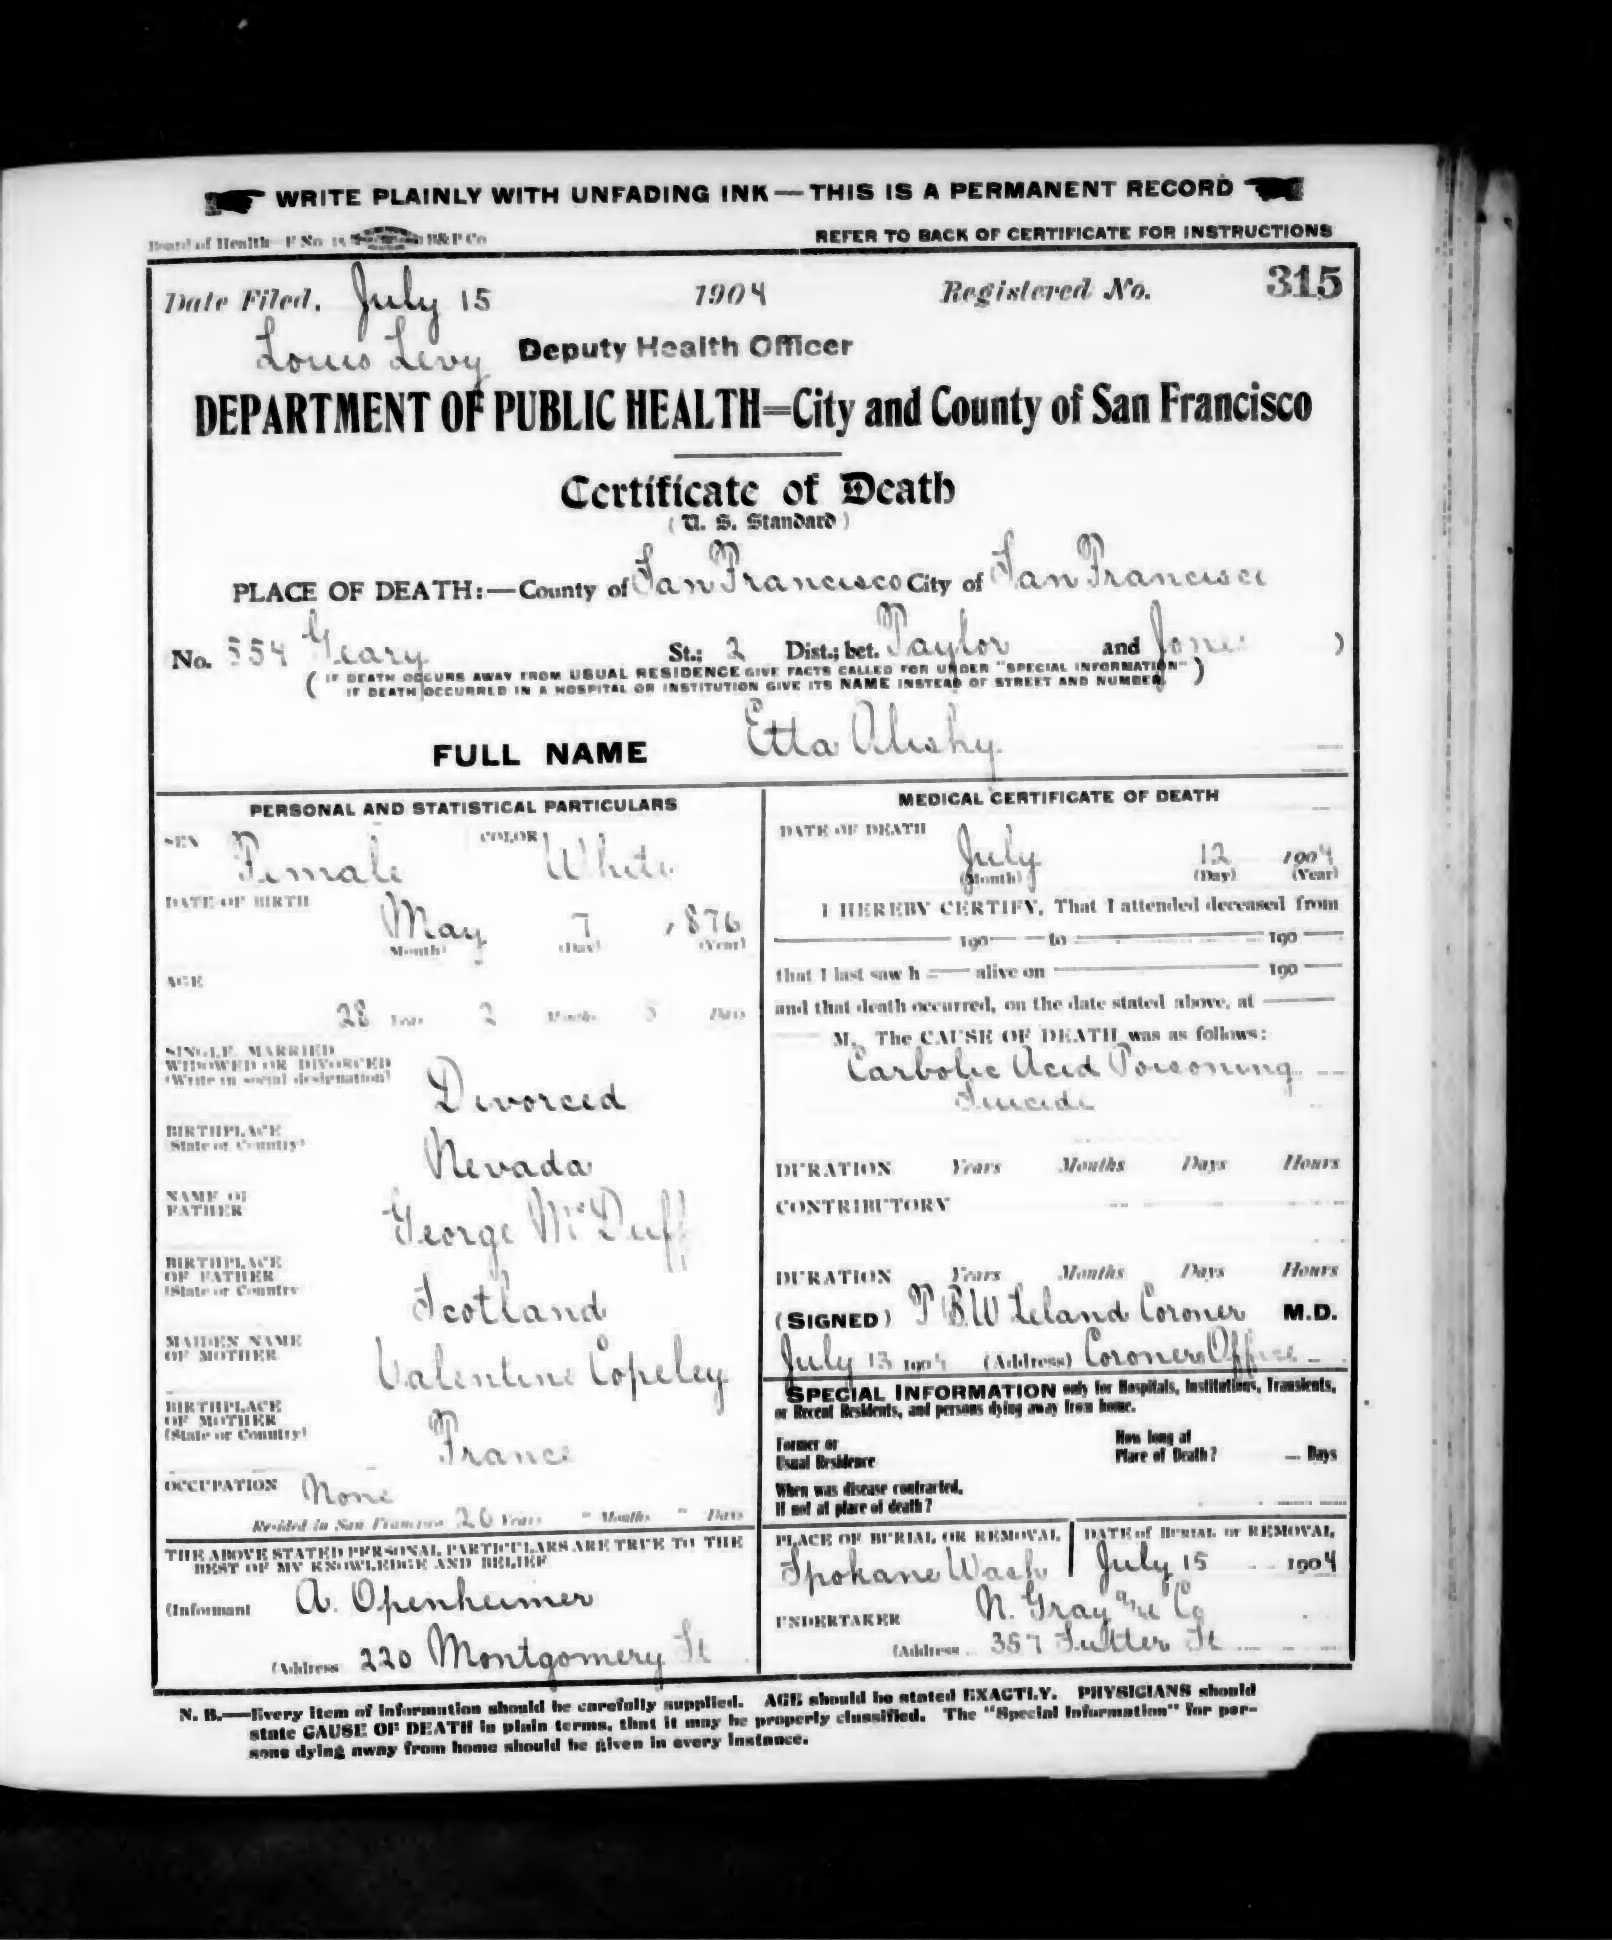 WRITE PLAINLY WITH UNFADING INK—THIS IS A PERMANENT RECORD
Board of Health—F No 15 B&P Co
REFER TO BACK OF CERTIFICATE FOR INSTRUCTIONS
Date Filed, July 15 1904 Registered No. 315
Louis Levy Deputy Health Officer
DEPARTMENT OF PUBLIC HEALTH=City and County of San Francisco
Certificate of Death
(U. S. Standard)
PLACE OF DEATH:—County of San Francisco City of San Francisco
No. 554 Geary St.; 2 Dist.; bet. Taylor and Jones )
( IF DEATH OCCURS AWAY FROM USUAL RESIDENCE GIVE FACTS CALLED FOR UNDER "SPECIAL INFORMATION" )
IF DEATH OCCURRED IN A HOSPITAL OR INSTITUTION GIVE ITS NAME INSTEAD OF STREET AND NUMBER.
FULL NAME Etta
PERSONAL AND STATISTICAL PARTICULARS
SEX Female COLOR White
DATE OF BIRTH
May 7 1876
(Month) (Day) (Year)
AGE
28 Years 2 Months 5 Days
SINGLE, MARRIED
WIDOWED OR DIVORCED
(Write in social designation)
Divorced
BIRTHPLACE
(State or Country)
Nevada
NAME OF
FATHER
George McDuff
BIRTHPLACE
OF FATHER
(State or Country
Scotland
MAIDEN NAME
OF MOTHER
Valentine Copeley
BIRTHPLACE
OF MOTHER
(State or Country)
France
OCCUPATION None
Resided in San Francisco 20 Years " Months " Days
THE ABOVE STATED PERSONAL PARTICULARS ARE TRUE TO THE
BEST OF MY KNOWLEDGE AND BELIEF
(Informant A. Openheimer
(Address 220 Montgomery St
MEDICAL CERTIFICATE OF DEATH
DATE OF DEATH
July 12 1904
(Month) (Day) (Year)
I HEREBY CERTIFY, That I attended deceased from
190 to 190
that I last saw h alive on 190
and that death occurred, on the date stated above, at
M. The CAUSE OF DEATH was as follows:
Carbolic Acid Poisoning
Suicide
DURATION Years Months Days Hours
CONTRIBUTORY
DURATION Years Months Days Hours
(SIGNED) T B W Leland Coroner M.D.
July 13 1904 (Address) Coroners Office
SPECIAL INFORMATION only for Hospitals, Institutions, Transients,
or Recent Residents, and persons dying away from home.
Former or
Usual Residence
How long at
Place of Death? Days
When was disease contracted,
If not at place of death?
PLACE OF BURIAL OR REMOVAL
Spokane Wash
DATE of BURIAL or REMOVAL
July 15 1904
UNDERTAKER N. Gray and Co
(Address 357 Sutter St
N. B.—Every item of information should be carefully supplied. AGE should be stated EXACTLY. PHYSICIANS should
state CAUSE OF DEATH in plain terms, that it may be properly classified. The "Special Information" for per-
sons dying away from home should be given in every instance.